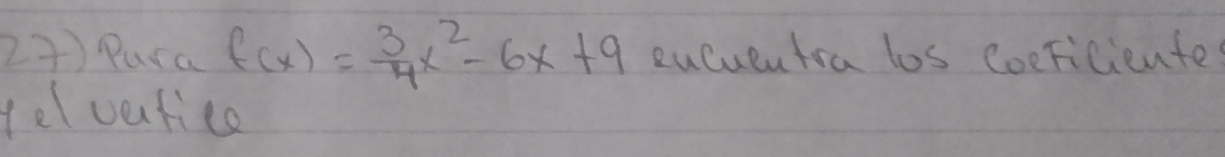 27) Para f(x) = 3/4 x² - 6x + 9 encuentra los coeficientes
y el vertice